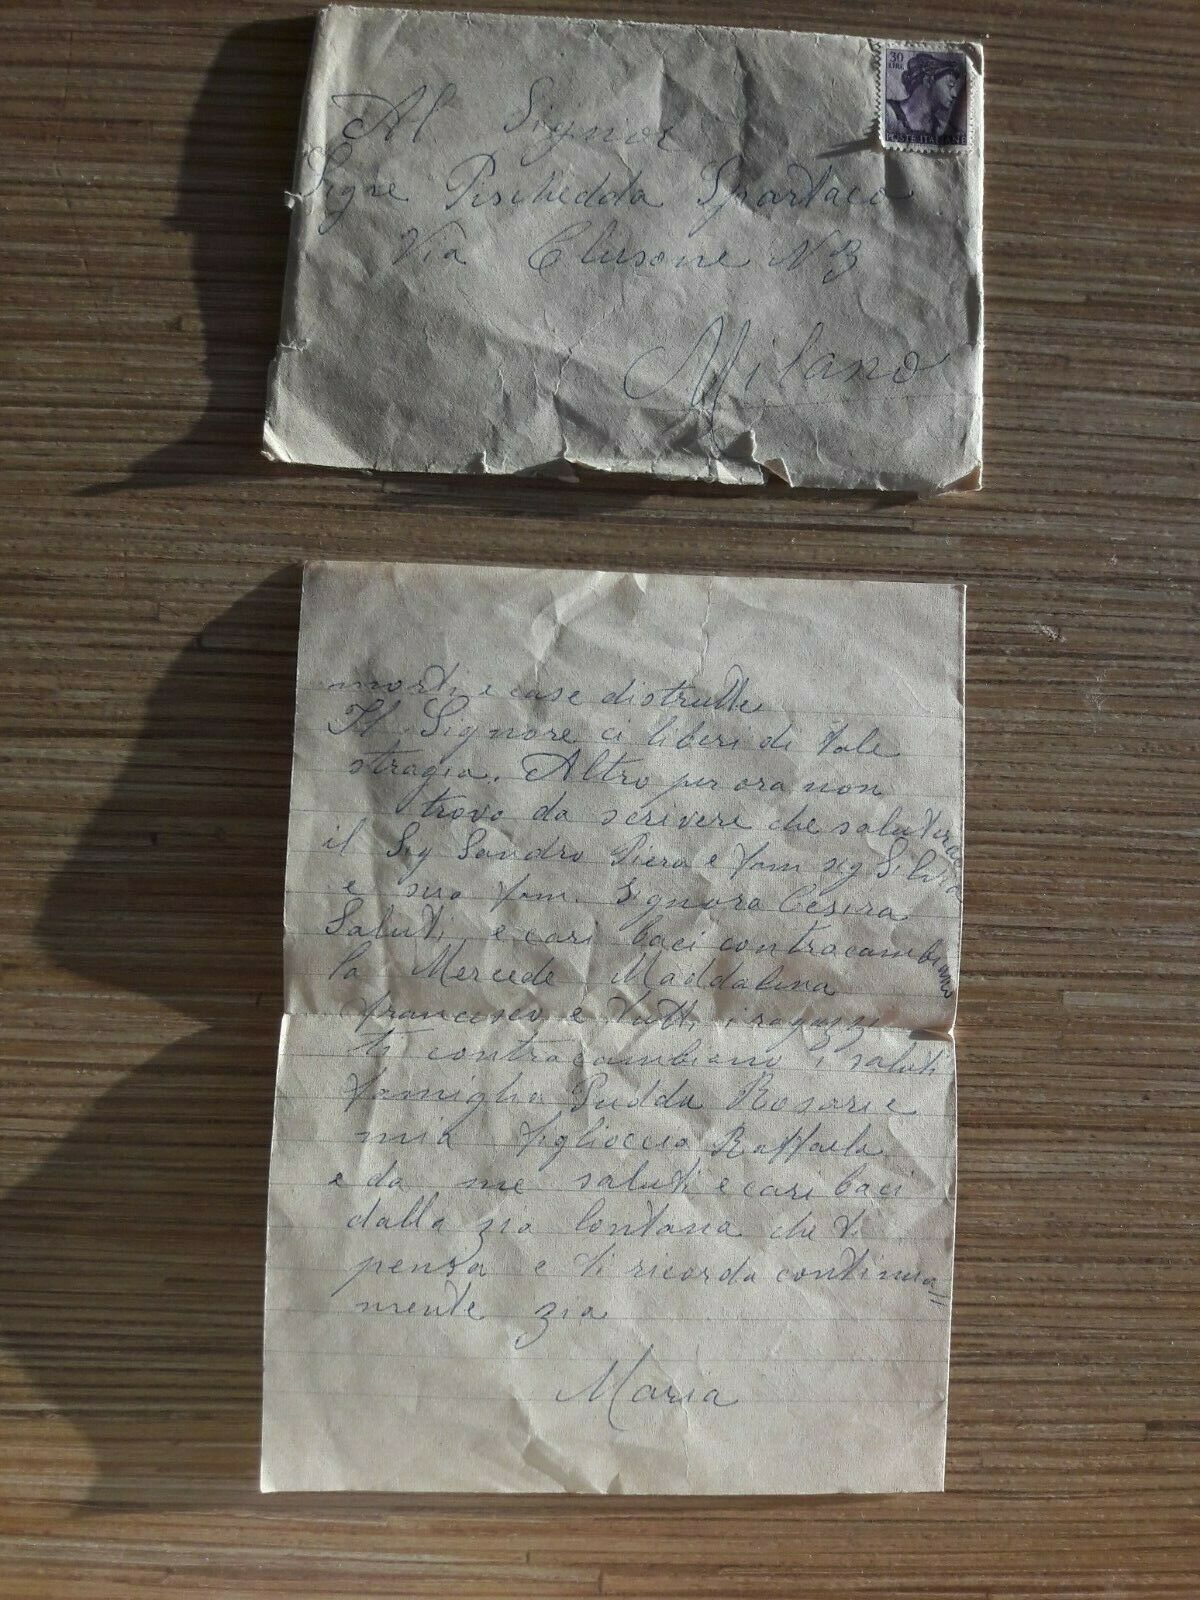 30
LIRE
POSTE ITALIANE
Al Signor
Sigre Pischedda Spartaco
Via Clusone N 3
Milano
morti e case distrutte
Il Signore ci liberi di tale
stragia. Altro per ora non
trovo da scrivere che saluterai
il Sig Sandro Piera e fam sig Silvia
e sua fam. Signora Cesira
Saluti e cari baci contracambiano
la Mercede Maddalena
francesco e tutti i ragazzi
ti contracambiano i saluti
famiglia Pudda Rosari e
mia figlioccia Raffaela
e da me saluti e cari baci
dalla zia lontana che ti
pensa e ti ricorda continua=
mente zia
Maria